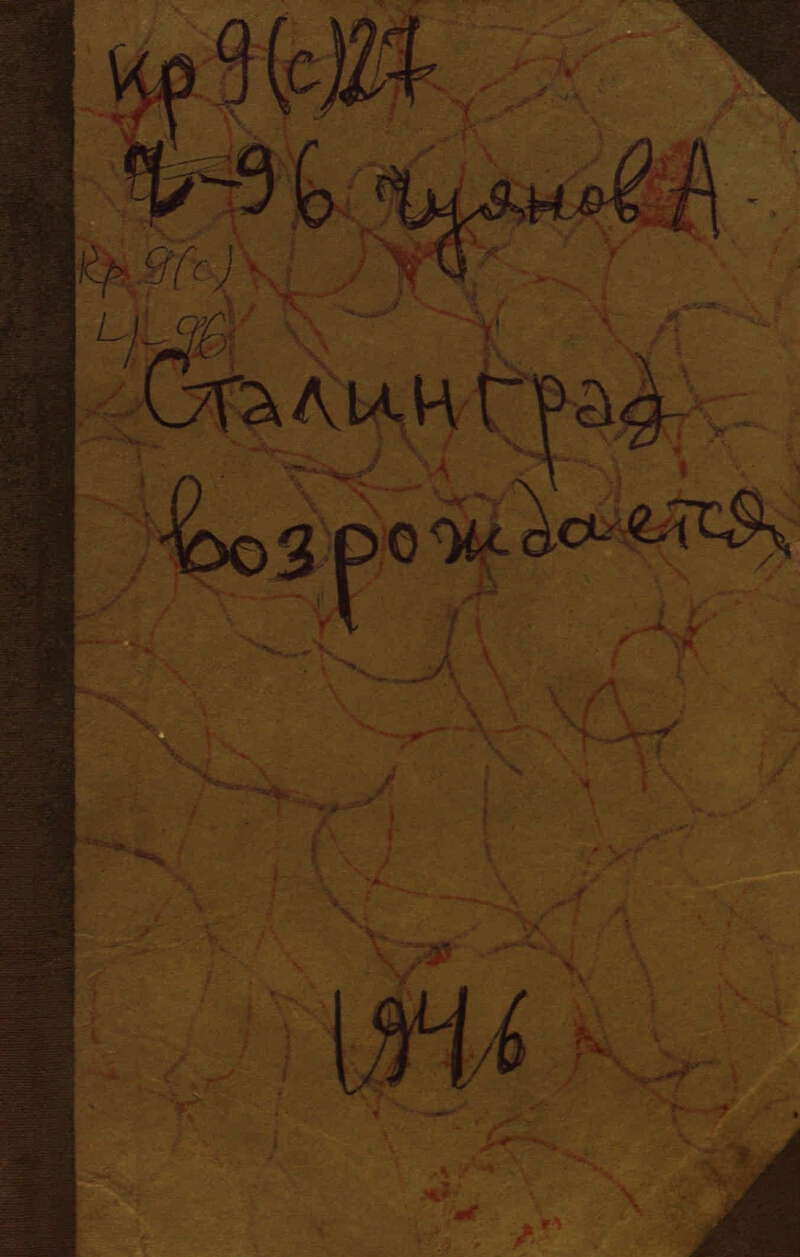 кр 9(с)27
Ч-96 Чуянов А
Кр 9(с)
Ч-96
Сталинград
возрождается
1946